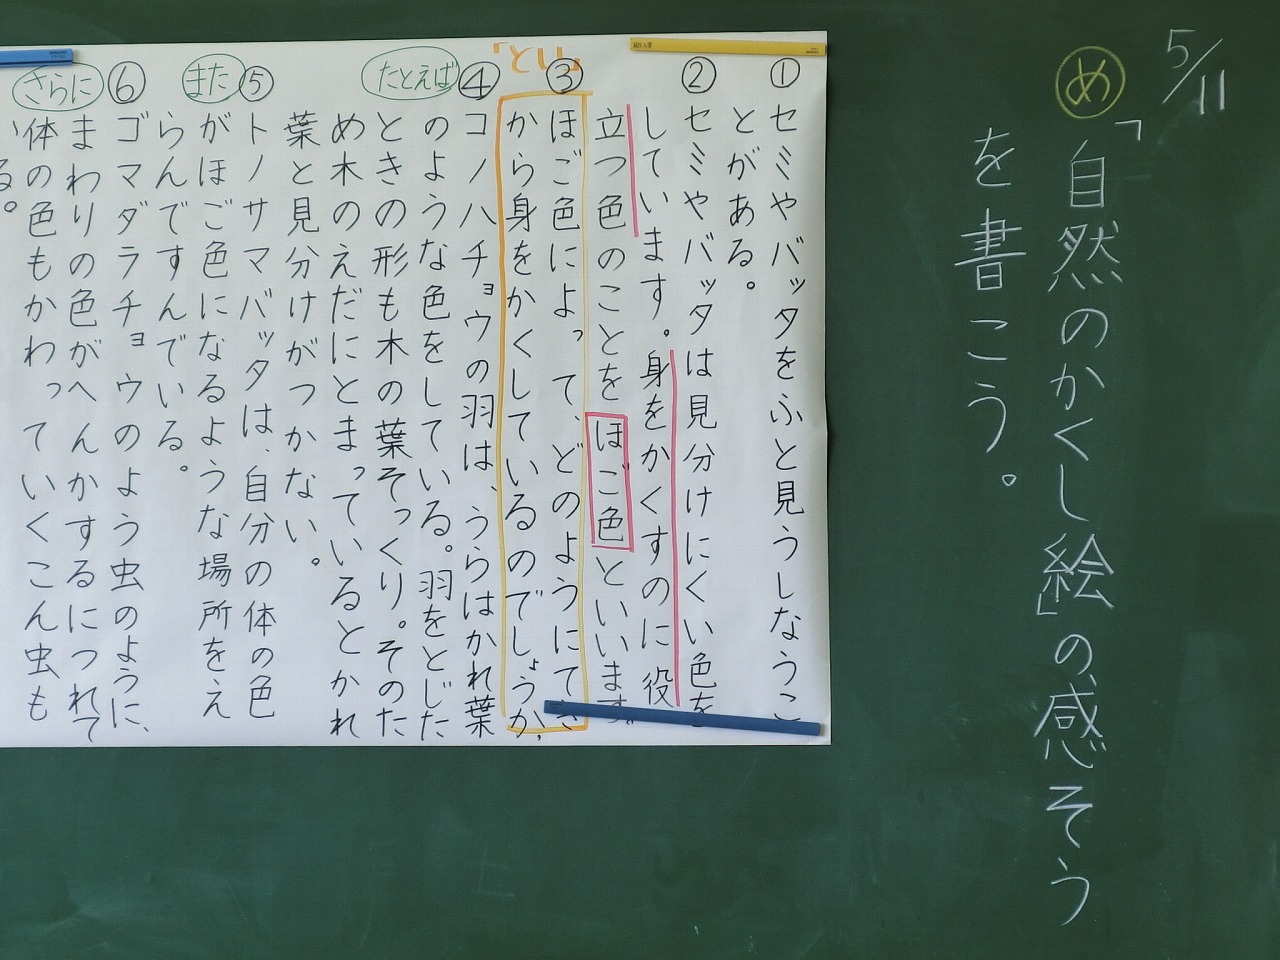 5/11
め
「自然のかくし絵」の感そう
を書こう。
① セミやバッタをふと見うしなうこ
とがある。
② セミやバッタは見分けにくい色を
しています。身をかくすのに役
立つ色のことをほご色といいます。
「とい」
③ ほご色によって、どのようにてき
から身をかくしているのでしょうか。
④ コノハチョウの羽は、うらはかれ葉
のような色をしている。羽をとじた
たとえば
ときの形も木の葉そっくり。そのた
め木のえだにとまっているとかれ
葉と見分けがつかない。
⑤ トノサマバッタは、自分の体の色
また
がほご色になるような場所をえ
らんですんでいる。
⑥ ゴマダラチョウのよう虫のように、
まわりの色がへんかするにつれて
さらに
体の色もかわっていくこん虫も
いる。